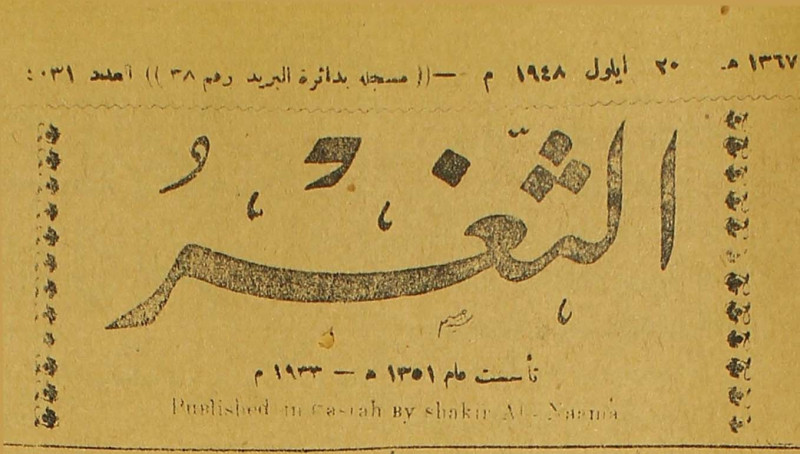 ١٣٦٧ هـ ٢٠ ايلول ١٩٤٨ م —(( مسجله بدائرة البريد رقم ٣٨ )) العدد
الثَّغْرُ
تأسست عام ١٣٥١ ه — ١٩٣٣ م
Published in By shakir Al-Naama